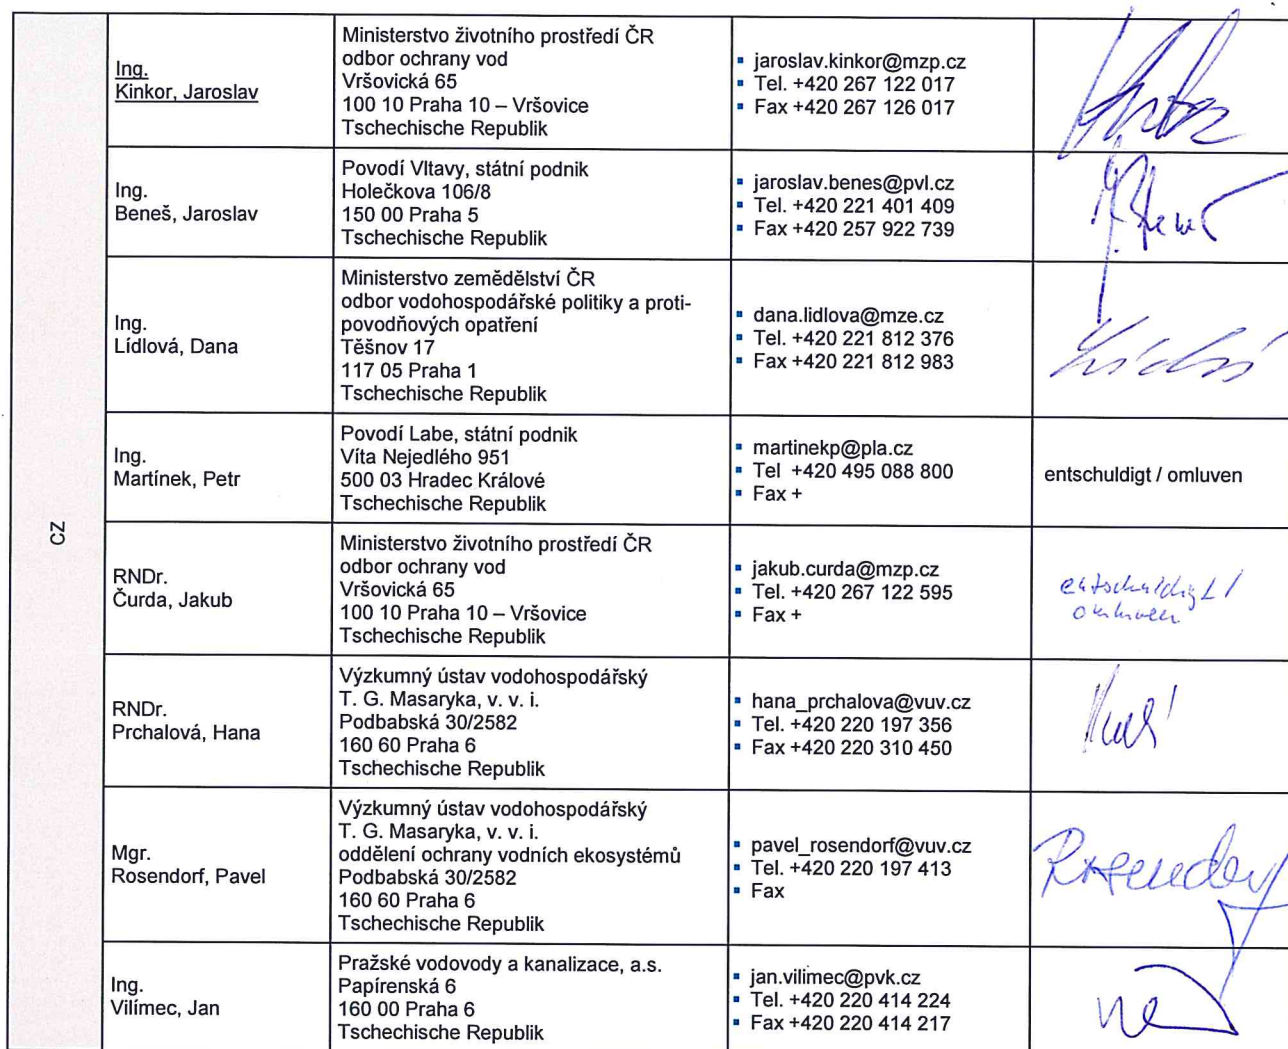 CZ
Ing.
Kinkor, Jaroslav
Ministerstvo životního prostředí ČR
odbor ochrany vod
Vršovická 65
100 10 Praha 10 – Vršovice
Tschechische Republik
▪ jaroslav.kinkor@mzp.cz
▪ Tel. +420 267 122 017
▪ Fax +420 267 126 017
Ing.
Beneš, Jaroslav
Povodí Vltavy, státní podnik
Holečkova 106/8
150 00 Praha 5
Tschechische Republik
▪ jaroslav.benes@pvl.cz
▪ Tel. +420 221 401 409
▪ Fax +420 257 922 739
Ing.
Lídlová, Dana
Ministerstvo zemědělství ČR
odbor vodohospodářské politiky a proti-
povodňových opatření
Těšnov 17
117 05 Praha 1
Tschechische Republik
▪ dana.lidlova@mze.cz
▪ Tel. +420 221 812 376
▪ Fax +420 221 812 983
Ing.
Martínek, Petr
Povodí Labe, státní podnik
Víta Nejedlého 951
500 03 Hradec Králové
Tschechische Republik
▪ martinekp@pla.cz
▪ Tel +420 495 088 800
▪ Fax +
entschuldigt / omluven
RNDr.
Čurda, Jakub
Ministerstvo životního prostředí ČR
odbor ochrany vod
Vršovická 65
100 10 Praha 10 – Vršovice
Tschechische Republik
▪ jakub.curda@mzp.cz
▪ Tel. +420 267 122 595
▪ Fax +
entschuldigt /
omluven
RNDr.
Prchalová, Hana
Výzkumný ústav vodohospodářský
T. G. Masaryka, v. v. i.
Podbabská 30/2582
160 60 Praha 6
Tschechische Republik
▪ hana_prchalova@vuv.cz
▪ Tel. +420 220 197 356
▪ Fax +420 220 310 450
Mgr.
Rosendorf, Pavel
Výzkumný ústav vodohospodářský
T. G. Masaryka, v. v. i.
oddělení ochrany vodních ekosystémů
Podbabská 30/2582
160 60 Praha 6
Tschechische Republik
▪ pavel_rosendorf@vuv.cz
▪ Tel. +420 220 197 413
▪ Fax
Rosendorf
Ing.
Vilímec, Jan
Pražské vodovody a kanalizace, a.s.
Papírenská 6
160 00 Praha 6
Tschechische Republik
▪ jan.vilimec@pvk.cz
▪ Tel. +420 220 414 224
▪ Fax +420 220 414 217